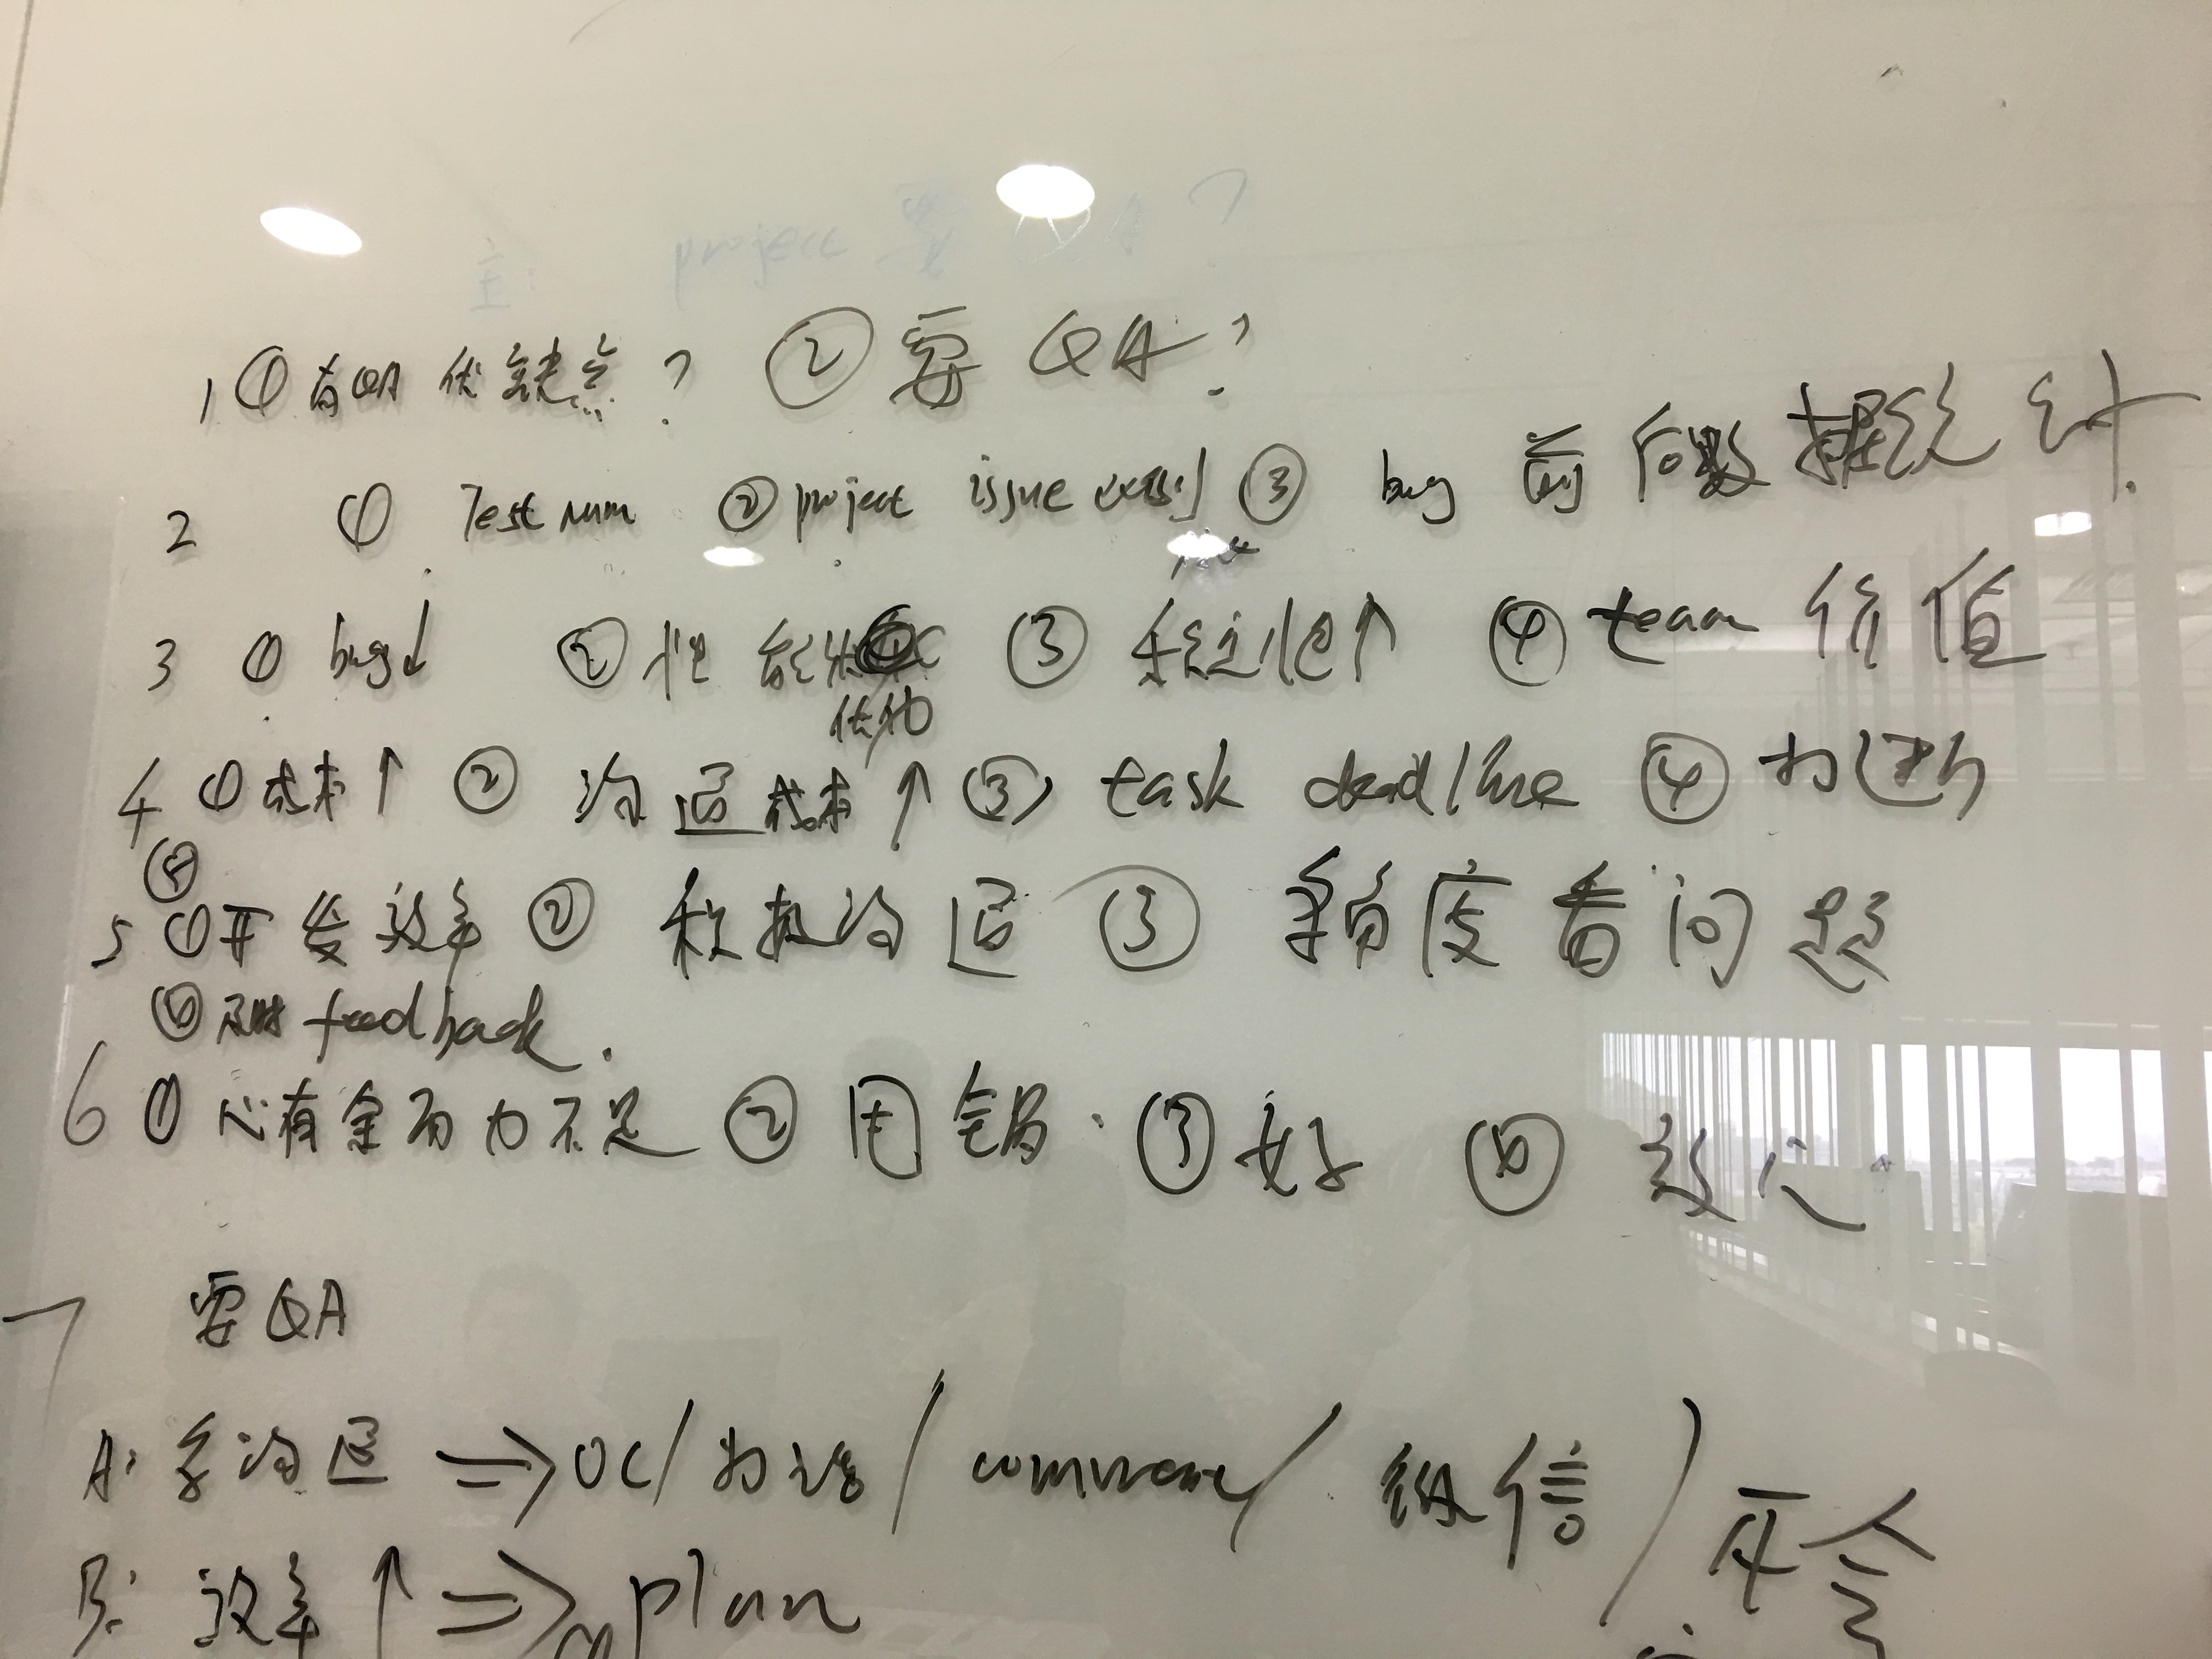 主: project 要 QA ?
1 ① 有QA 优缺点 ? ② 要 QA ?
2 ① Test num ② project issue ③ bug 前后数据统计.
3 ① bug↓ ② 性能 优化 ③ 稳定性↑ ④ team 价值
4 ① 成本↑ ② 沟通成本↑ ③ task deadline ④ 打断
5 ① 开发效率 ② 积极沟通 ③ 多角度看问题
⑥ 及时 feedback.
6 ① 心有余而力不足 ② 甩锅. ③ 好 ⑥ 放心
7 要QA
A: 多沟通 ⇒ OC/ 电话/ comment/ 微信/ 开会
B: 效率↑ ⇒ plan